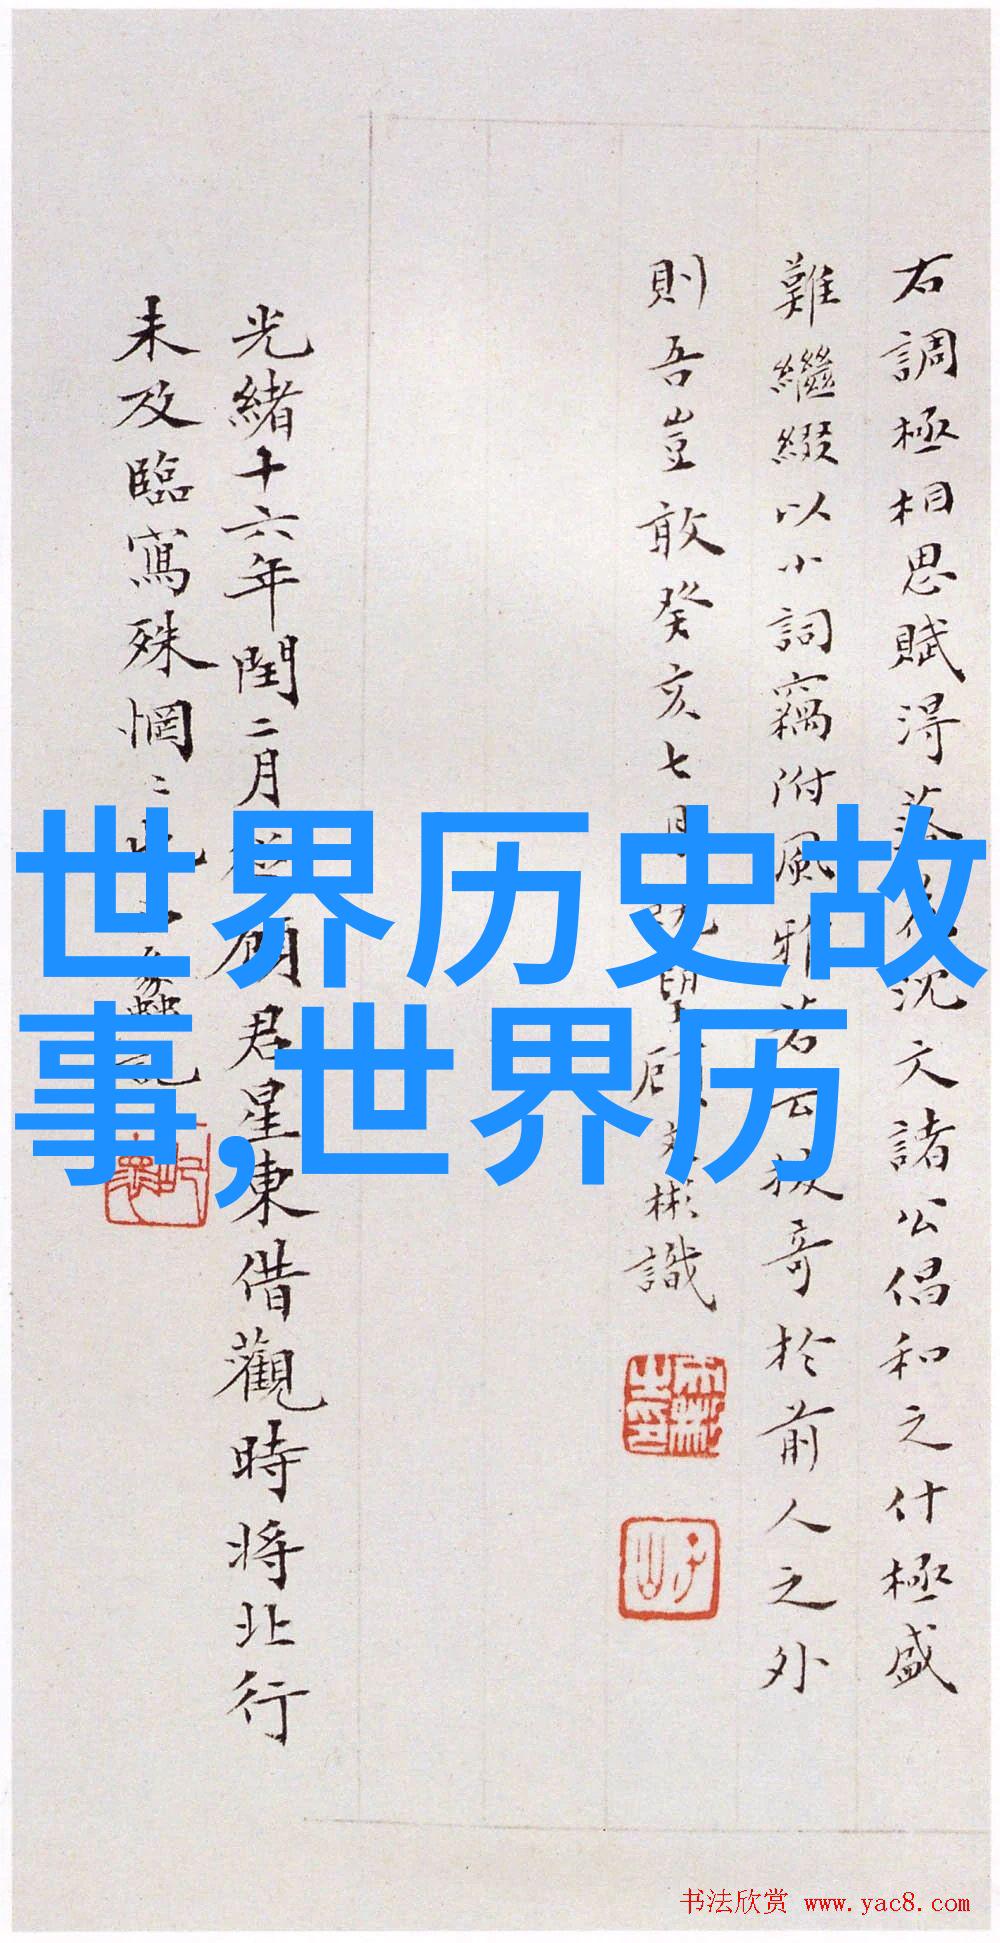 右調極相思賦得落花沈文諸公倡和之什極盛
難繼綴以小詞竊附風雅若云扳奇於前人之外
則吾豈敢癸亥七月既望顧文彬識
光緒十六年閏二月從顧君星東借觀時將北行
未及臨寫殊惘〻也
世界历史故
事,世界历
书法欣赏 www.yac8.com